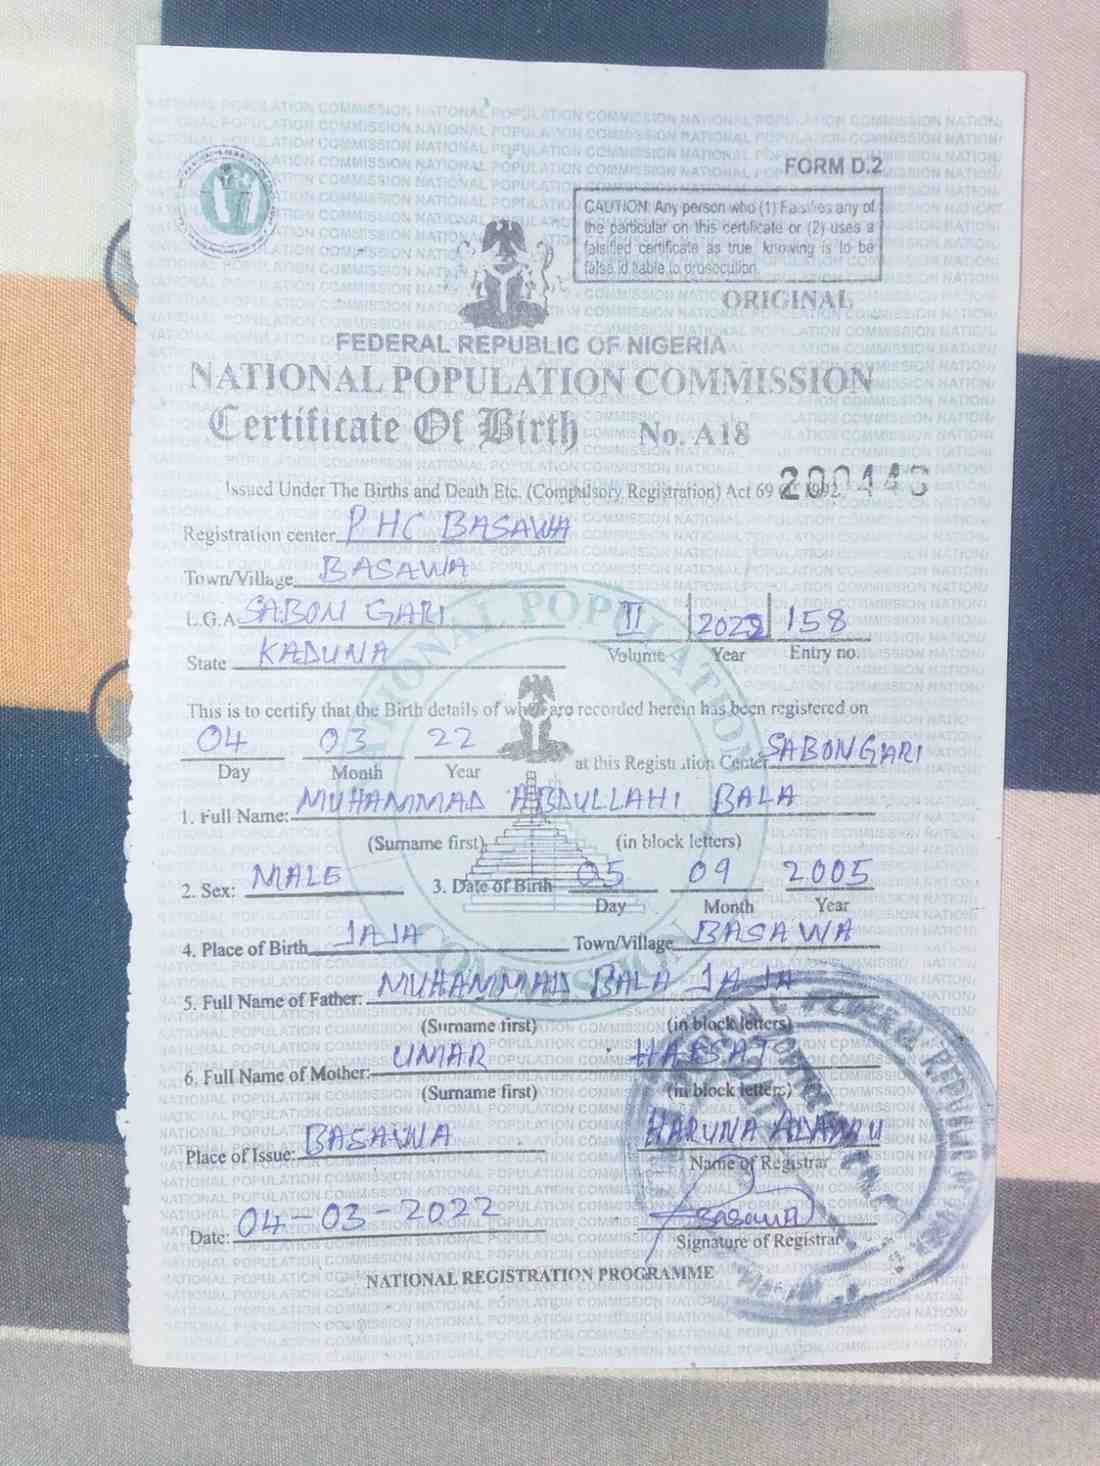 FORM D.2
CAUTION: Any person who (1) Falsifies any of
the particular on this certificate or (2) uses a
falsified certificate as true, knowing is to be
false id liable to prosecution.
ORIGINAL
FEDERAL REPUBLIC OF NIGERIA
NATIONAL POPULATION COMMISSION
Certificate Of Birth No. A18
Issued Under The Births and Death Etc. (Compulsory Registration) Act 69 of 1992.
Registration center PHC BASAWA
Town/Village BASAWA
L.G.A SABON GARI II 2022 158
State KADUNA Volume Year Entry no.
This is to certify that the Birth details of whom are recorded herein has been registered on
04 03 22 at this Registration Center SABON GARI
Day Month Year
1. Full Name: MUHAMMAD ABDULLAHI BALA
(Surname first) (in block letters)
2. Sex: MALE 3. Date of Birth 05 09 2005
Day Month Year
4. Place of Birth JAJA Town/Village BASAWA
5. Full Name of Father: MUHAMMAD BALA JAJA
(Surname first) (in block letters)
6. Full Name of Mother: UMAR HAFSAT
(Surname first) (in block letters)
Place of Issue: BASAWA HARUNA
Name of Registrar
Date: 04-03-2022
Signature of Registrar
NATIONAL REGISTRATION PROGRAMME
NATIONAL POPULATION COMMISSION